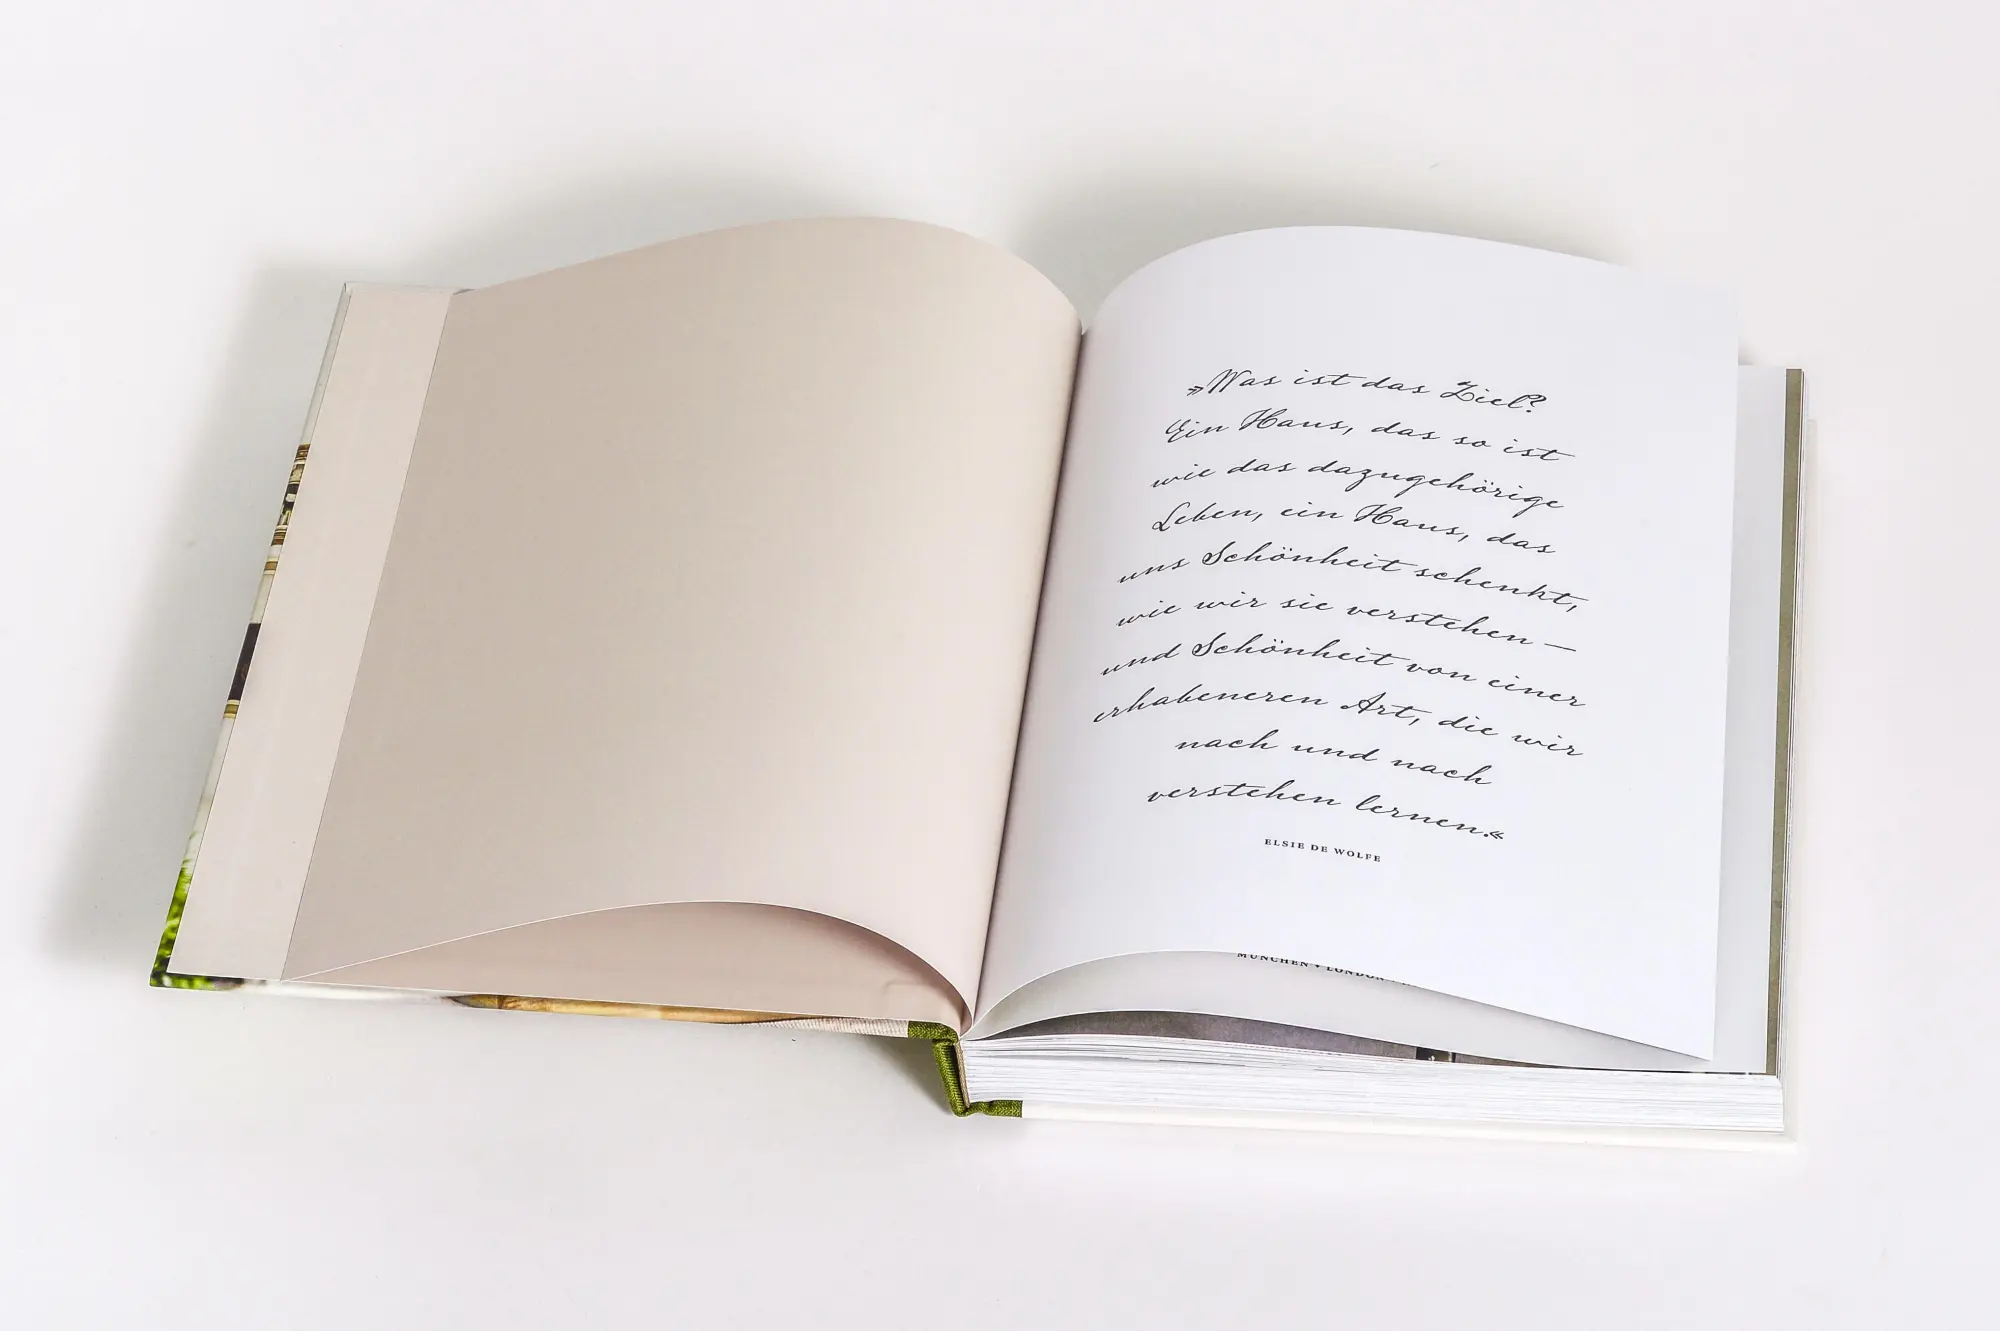 »Was ist das Ziel?
Ein Haus, das so ist
wie das dazugehörige
Leben, ein Haus, das
uns Schönheit schenkt,
wie wir sie verstehen –
und Schönheit von einer
erhabeneren Art, die wir
nach und nach
verstehen lernen.«
ELSIE DE WOLFE
MÜNCHEN • LONDON